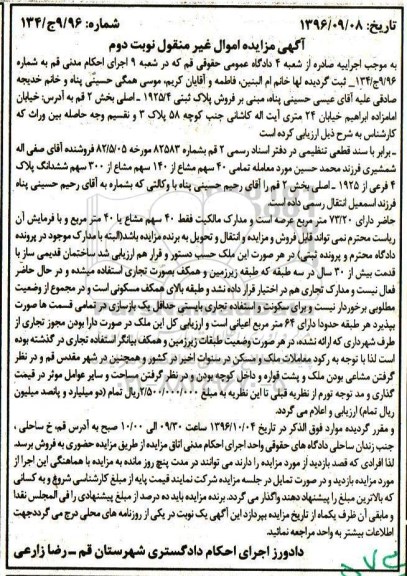 تاریخ: ۱۳۹۶/۰۹/۰۸ شماره: ۹/۹۶ج/۱۳۴
آگهی مزایده اموال غیر منقول نوبت دوم
به موجب اجراییه صادره از شعبه ۴ دادگاه عمومی حقوقی قم که در شعبه ۹ اجرای احکام مدنی قم به شماره
۹/۹۶ج/۱۳۴_ ثبت گردیده لها خانم ام البنین، فاطمه و آقایان کریم، موسی همگی حسینی پناه و خانم خدیجه
صادقی علیه آقای عیسی حسینی پناه، مبنی بر فروش پلاک ثبتی ۱۹۲۵/۴ _ اصلی بخش ۲ قم به آدرس: خیابان
امامزاده ابراهیم خیابان ۲۴ متری آیت اله کاشانی جنب کوچه ۵۸ پلاک ۳ و تقسیم وجه حاصله بین وراث که
کارشناس به شرح ذیل ارزیابی کرده است
ـ برابر با سند قطعی تنظیمی در دفتر اسناد رسمی ۲ قم بشماره ۸۲۵۸۳ مورخه ۸۲/۵/۰۵ فروشنده آقای صفی اله
شمشیری فرزند محمد حسین مورد معامله تمامی ۴۰ سهم مشاع از ۱۴۰ سهم مشاع از ۳۰۰ سهم ششدانگ پلاک
۴ فرعی از ۱۹۲۵ ـ اصلی بخش ۲ قم را آقای رحیم حسینی پناه با وکالتی که بشماره به آقای رحیم حسینی پناه
فرزند اسمعیل انتقال رسمی داده است
حاضر دارای ۷۳/۲۰ متر مربع عرصه است و مدارک مالکیت فقط ۴۰ سهم مشاع یا ۴۰ متر مربع و با فرمایش آن
ریاست محترم نمی تواند قابل فروش و مزایده و انتقال و تحویل به برنده مزایده باشد(البته با مدارک موجود در پرونده
دادگاه محترم و پرونده ثبتی) در هر صورت این ملک حسب دستور و قرار هم ارزیابی شد ساختمان قدیمی ساز با
قدمت بیش از ۳۰ سال در سه طبقه که طبقه زیرزمین و همکف بصورت تجاری استفاده میشده و در حال حاضر
فعال نیست و مدارک تجاری هم در اختیار قرار داده نشد و طبقه بالای همکف مسکونی است و در مجموع از وضعیت
مطلوبی برخوردار نیست و برای سکونت و استفاده تجاری بایستی حداقل یک بازسازی در تمامی قسمت ها صورت
بپذیرد هر طبقه حدودا دارای ۶۴ متر مربع اعیانی است و ارزیابی کل این ملک در صورت دارا بودن مجوز تجاری از
طرف شهرداری که ارائه نشده، در هر صورت وضعیت طبقات زیرزمین و همکف بیانگر استفاده تجاری در گذشته بوده
است لذا با توجه به رکود معاملات ملک و مسکن در سنوات اخیر در کشور و همچنین در شهر مقدس قم و در نظر
گرفتن مشاعی بودن ملک و پشت قواره و داخل کوچه بودن و در نظر گرفتن مساحت و سایر عوامل موثر در قیمت
گذاری و مد توجه تورم از نظریه قبلی تا این نظریه به مبلغ ۲/۵۰۰/۰۰۰/۰۰۰ریال تمام (دو میلیارد و پانصد میلیون
ریال تمام) ارزیابی و اعلام می گردد.
و مقرر گردیده موارد فوق الذکر در تاریخ ۱۳۹۶/۱۰/۰۴ ساعت ۰۹/۳۰ الی ۱۰/۰۰ صبح به آدرس قم، خ ساحلی ،
جنب زندان ساحلی دادگاه های حقوقی واحد اجرای احکام مدنی اتاق مزایده از طریق مزایده حضوری به فروش برسد.
لذا افرادی که قصد بازدید از مورد مزایده را دارند می توانند در مدت پنج روز مانده به مزایده با هماهنگی این اجرا از
مورد مزایده بازدید و در صورت تمایل در جلسه مزایده شرکت نمایند قیمت پایه از مبلغ کارشناسی شروع و به کسانی
که بالاترین مبلغ را پیشنهاد دهند واگذار می گردد. برنده مزایده باید ده درصد از مبلغ پیشنهادی را فی المجلس نقدا
و مابقی آن ظرف یکماه از تاریخ مزایده بپردازد این آگهی یک نوبت در یکی از روزنامه های محلی درج می گرددجهت
اطلاعات بیشتر به واحد مراجعه نمائید.
دادورز اجرای احکام دادگستری شهرستان قم ـ رضا زارعی